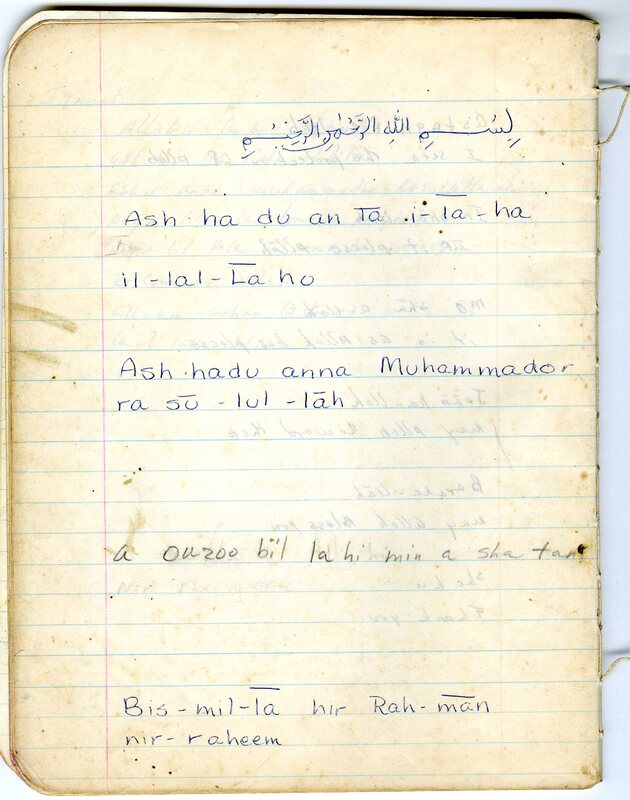 بِسْمِ اللهِ الرَّحْمٰنِ الرَّحِيْمِ
Ash ha du an l̅a̅ i-l̅a̅-ha
il-lal-L̅a̅ ho
Ash hadu anna Muhammador
ra sū-lul-lāh
a ouzoo bil lahi min a sha tan
Bis-mil-l̅a̅ hir Rah-m̅a̅n
nir-raheem